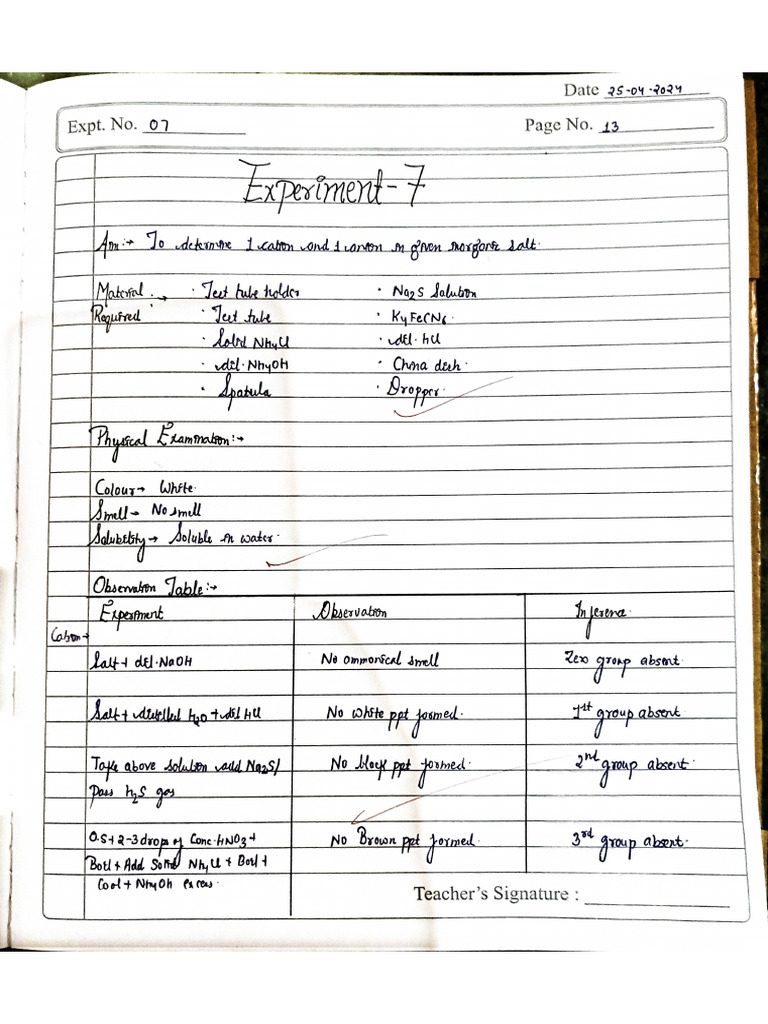 Date 25-04-2024
Expt. No. 07 Page No. 13
Experiment-7
Aim:→ To determine 1 cation and 1 anion in given inorganic salt.
Material :→ · Test tube holder · Na2S Solution
Required · Test tube · K4Fe(CN6.
· Solid NH4Cl · dil. HCl
· dil. NH4OH · China dish.
· Spatula · Dropper.
Physical Examination:→
Colour→ White.
Smell→ No smell
Solubility→ Soluble in water.
Observation Table:→
Experiment Observation Inference
Cation→
Salt + dil. NaOH No ammonical smell Zero group absent.
Salt + distilled H2O + dil HCl No white ppt formed. 1st group absent.
Take above solution add Na2S/ No black ppt formed. 2nd group absent.
pass H2S gas
O.S + 2-3 drops of Conc. HNO3 + No Brown ppt formed. 3rd group absent.
Boil + Add Solid NH4Cl + Boil +
Cool + NH4OH excess.
Teacher's Signature :